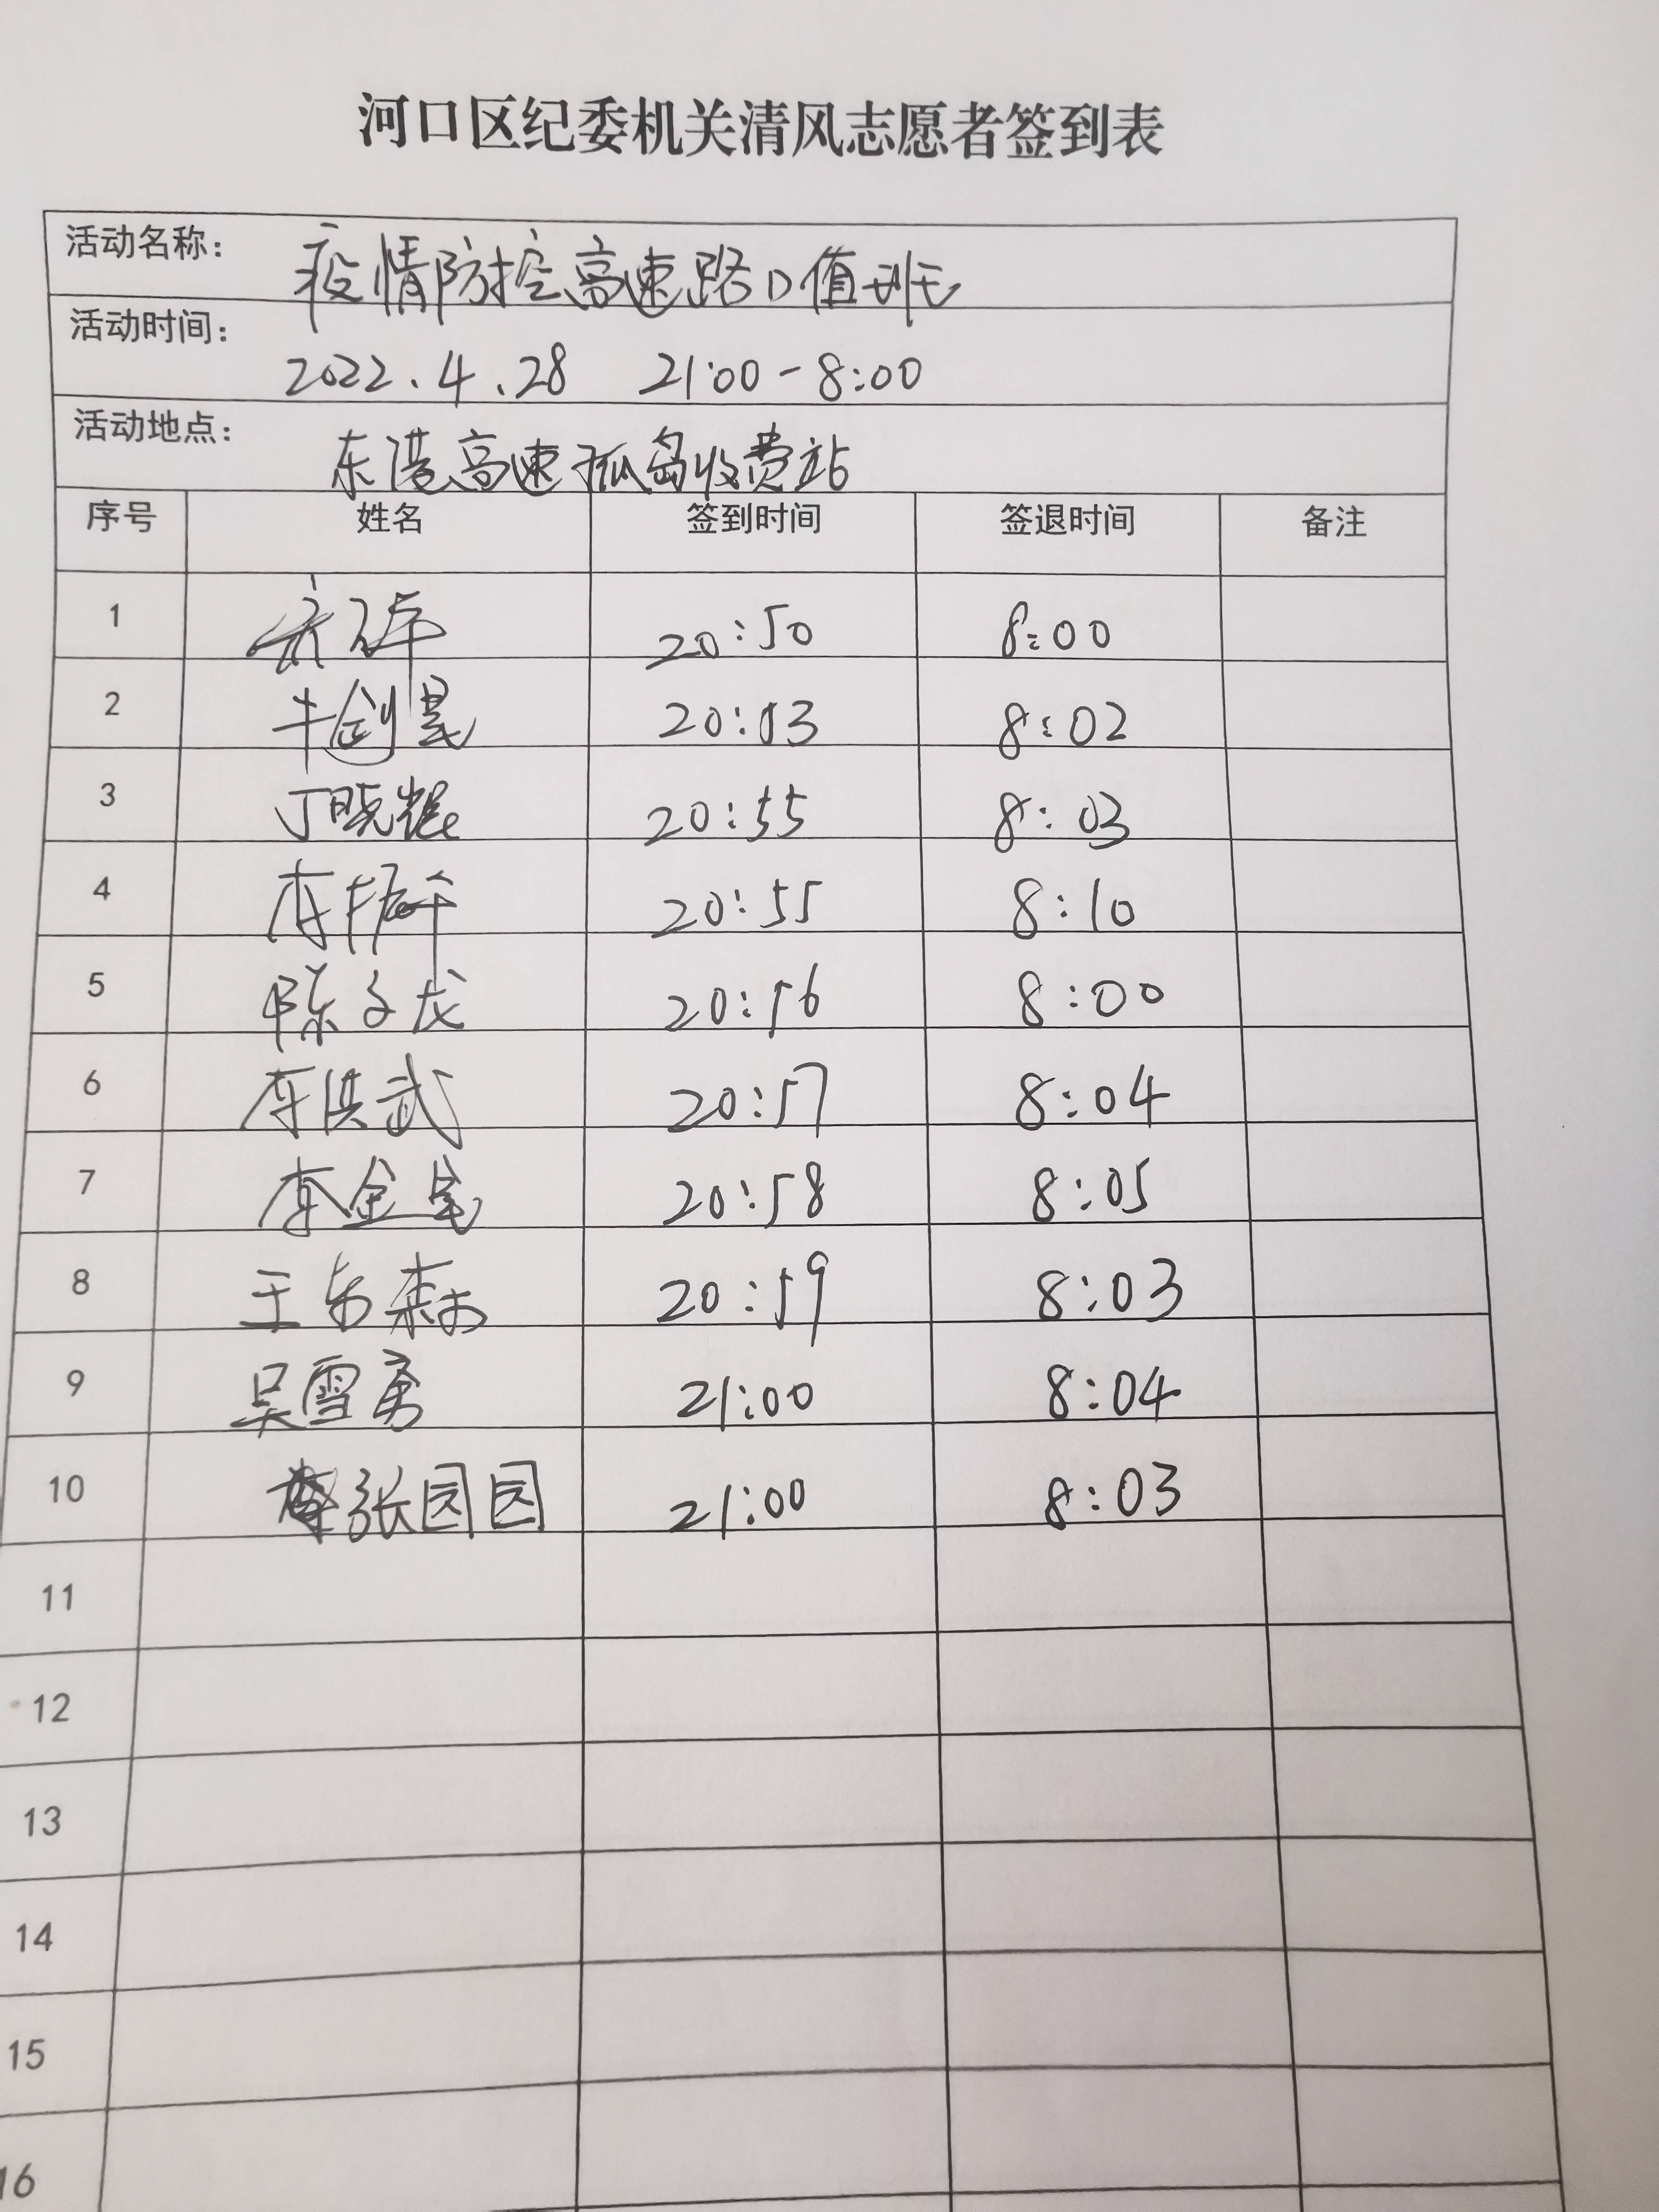 河口区纪委机关清风志愿者签到表
活动名称： 疫情防控高速路口值班
活动时间： 2022.4.28 21:00-8:00
活动地点： 东港高速孤岛收费站
序号 姓名 签到时间 签退时间 备注
1 20:50 8:00
2 牛剑 20:53 8:02
3 丁晓 20:55 8:03
4 李 20:55 8:10
5 陈子龙 20:56 8:00
6 李洪武 20:57 8:04
7 李金 20:58 8:05
8 王 20:59 8:03
9 吴雪勇 21:00 8:04
10 张园园 21:00 8:03
11
12
13
14
15
16